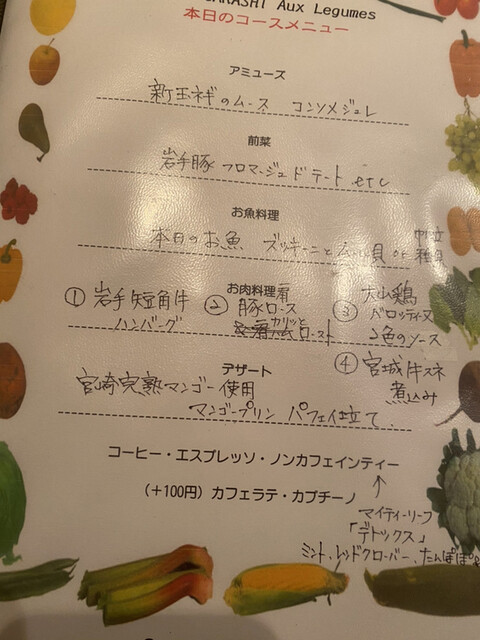 Aux Legumes
本日のコースメニュー
アミューズ
新玉ネギのムース コンソメジュレ
前菜
岩手豚 フロマージュドテート etc
お魚料理
本日のお魚 ズッキーニとムール貝 or 帆立
お肉料理
① 岩手短角牛
ハンバーグ
② 肩
豚ロース
カリッと
ロースト
③ 大山鶏
バロティーヌ
2色のソース
④ 宮城牛スネ
煮込み
デザート
宮崎完熟マンゴー使用
マンゴープリン パフェ仕立て
コーヒー・エスプレッソ・ノンカフェインティー
(+100円) カフェラテ・カプチーノ
マイティーリーフ
「デトックス」
ミント、レッドクローバー、たんぽぽ